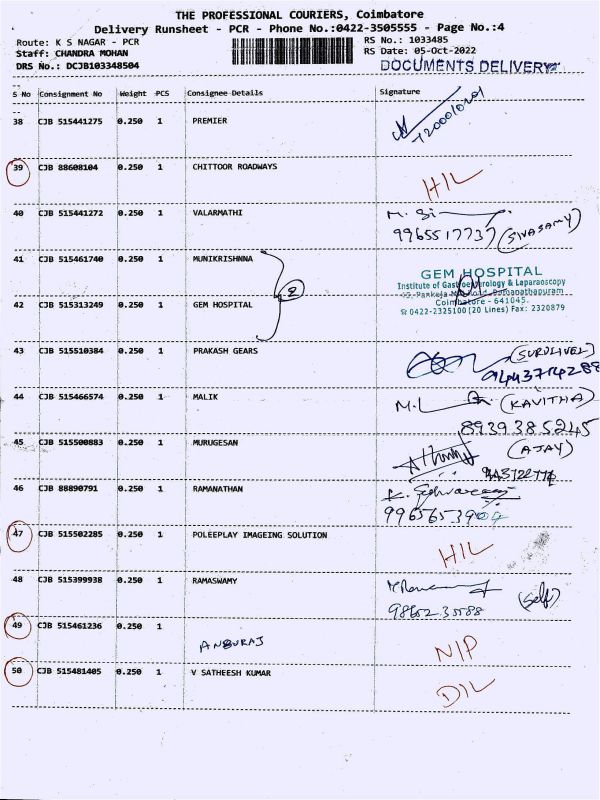 THE PROFESSIONAL COURIERS, Coimbatore
Delivery Runsheet - PCR - Phone No.:0422-3505555 - Page No.:4
Route: K S NAGAR - PCR RS No.: 1033485
Staff: CHANDRA MOHAN RS Date: 05-Oct-2022
DRS No.: DCJB103348504 DOCUMENTS DELIVERY
S No Consignment No Weight PCS Consignee Details Signature
38 CJB 515441275 0.250 1 PREMIER
39 CJB 88608104 0.250 1 CHITTOOR ROADWAYS
HIL
40 CJB 515441272 0.250 1 VALARMATHI
9965517737 (SIVASAMY)
41 CJB 515461740 0.250 1 MUNIKRISHNNA
GEM HOSPITAL
Institute of Gastroenterology & Laparaoscopy
2
42 CJB 515313249 0.250 1 GEM HOSPITAL
Coimbatore - 641045.
0422-2325100 (20 Lines) Fax: 2320879
43 CJB 515510384 0.250 1 PRAKASH GEARS
9443714288
44 CJB 515466574 0.250 1 MALIK
(KAVITHA)
8939385245
45 CJB 515500883 0.250 1 MURUGESAN
(AJAY)
46 CJB 88890791 0.250 1 RAMANATHAN
9965653904
47 CJB 515502285 0.250 1 POLEEPLAY IMAGEING SOLUTION
HIL
48 CJB 51539993B 0.250 1 RAMASWAMY
(Self)
49 CJB 515461236 0.250 1
ANBURAJ
NIP
50 CJB 515481405 0.250 1 V SATHEESH KUMAR
DIL